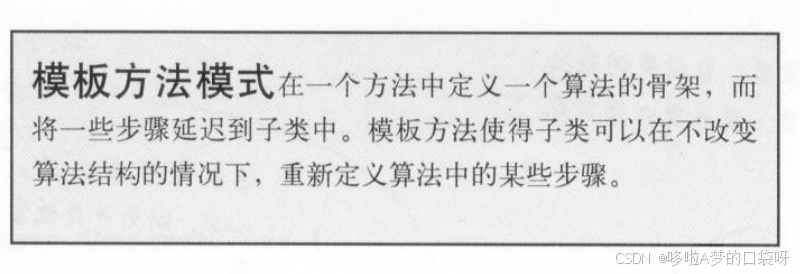 模板方法模式在一个方法中定义一个算法的骨架，而
将一些步骤延迟到子类中。模板方法使得子类可以在不改变
算法结构的情况下，重新定义算法中的某些步骤。
CSDN @哆啦A梦的口袋呀